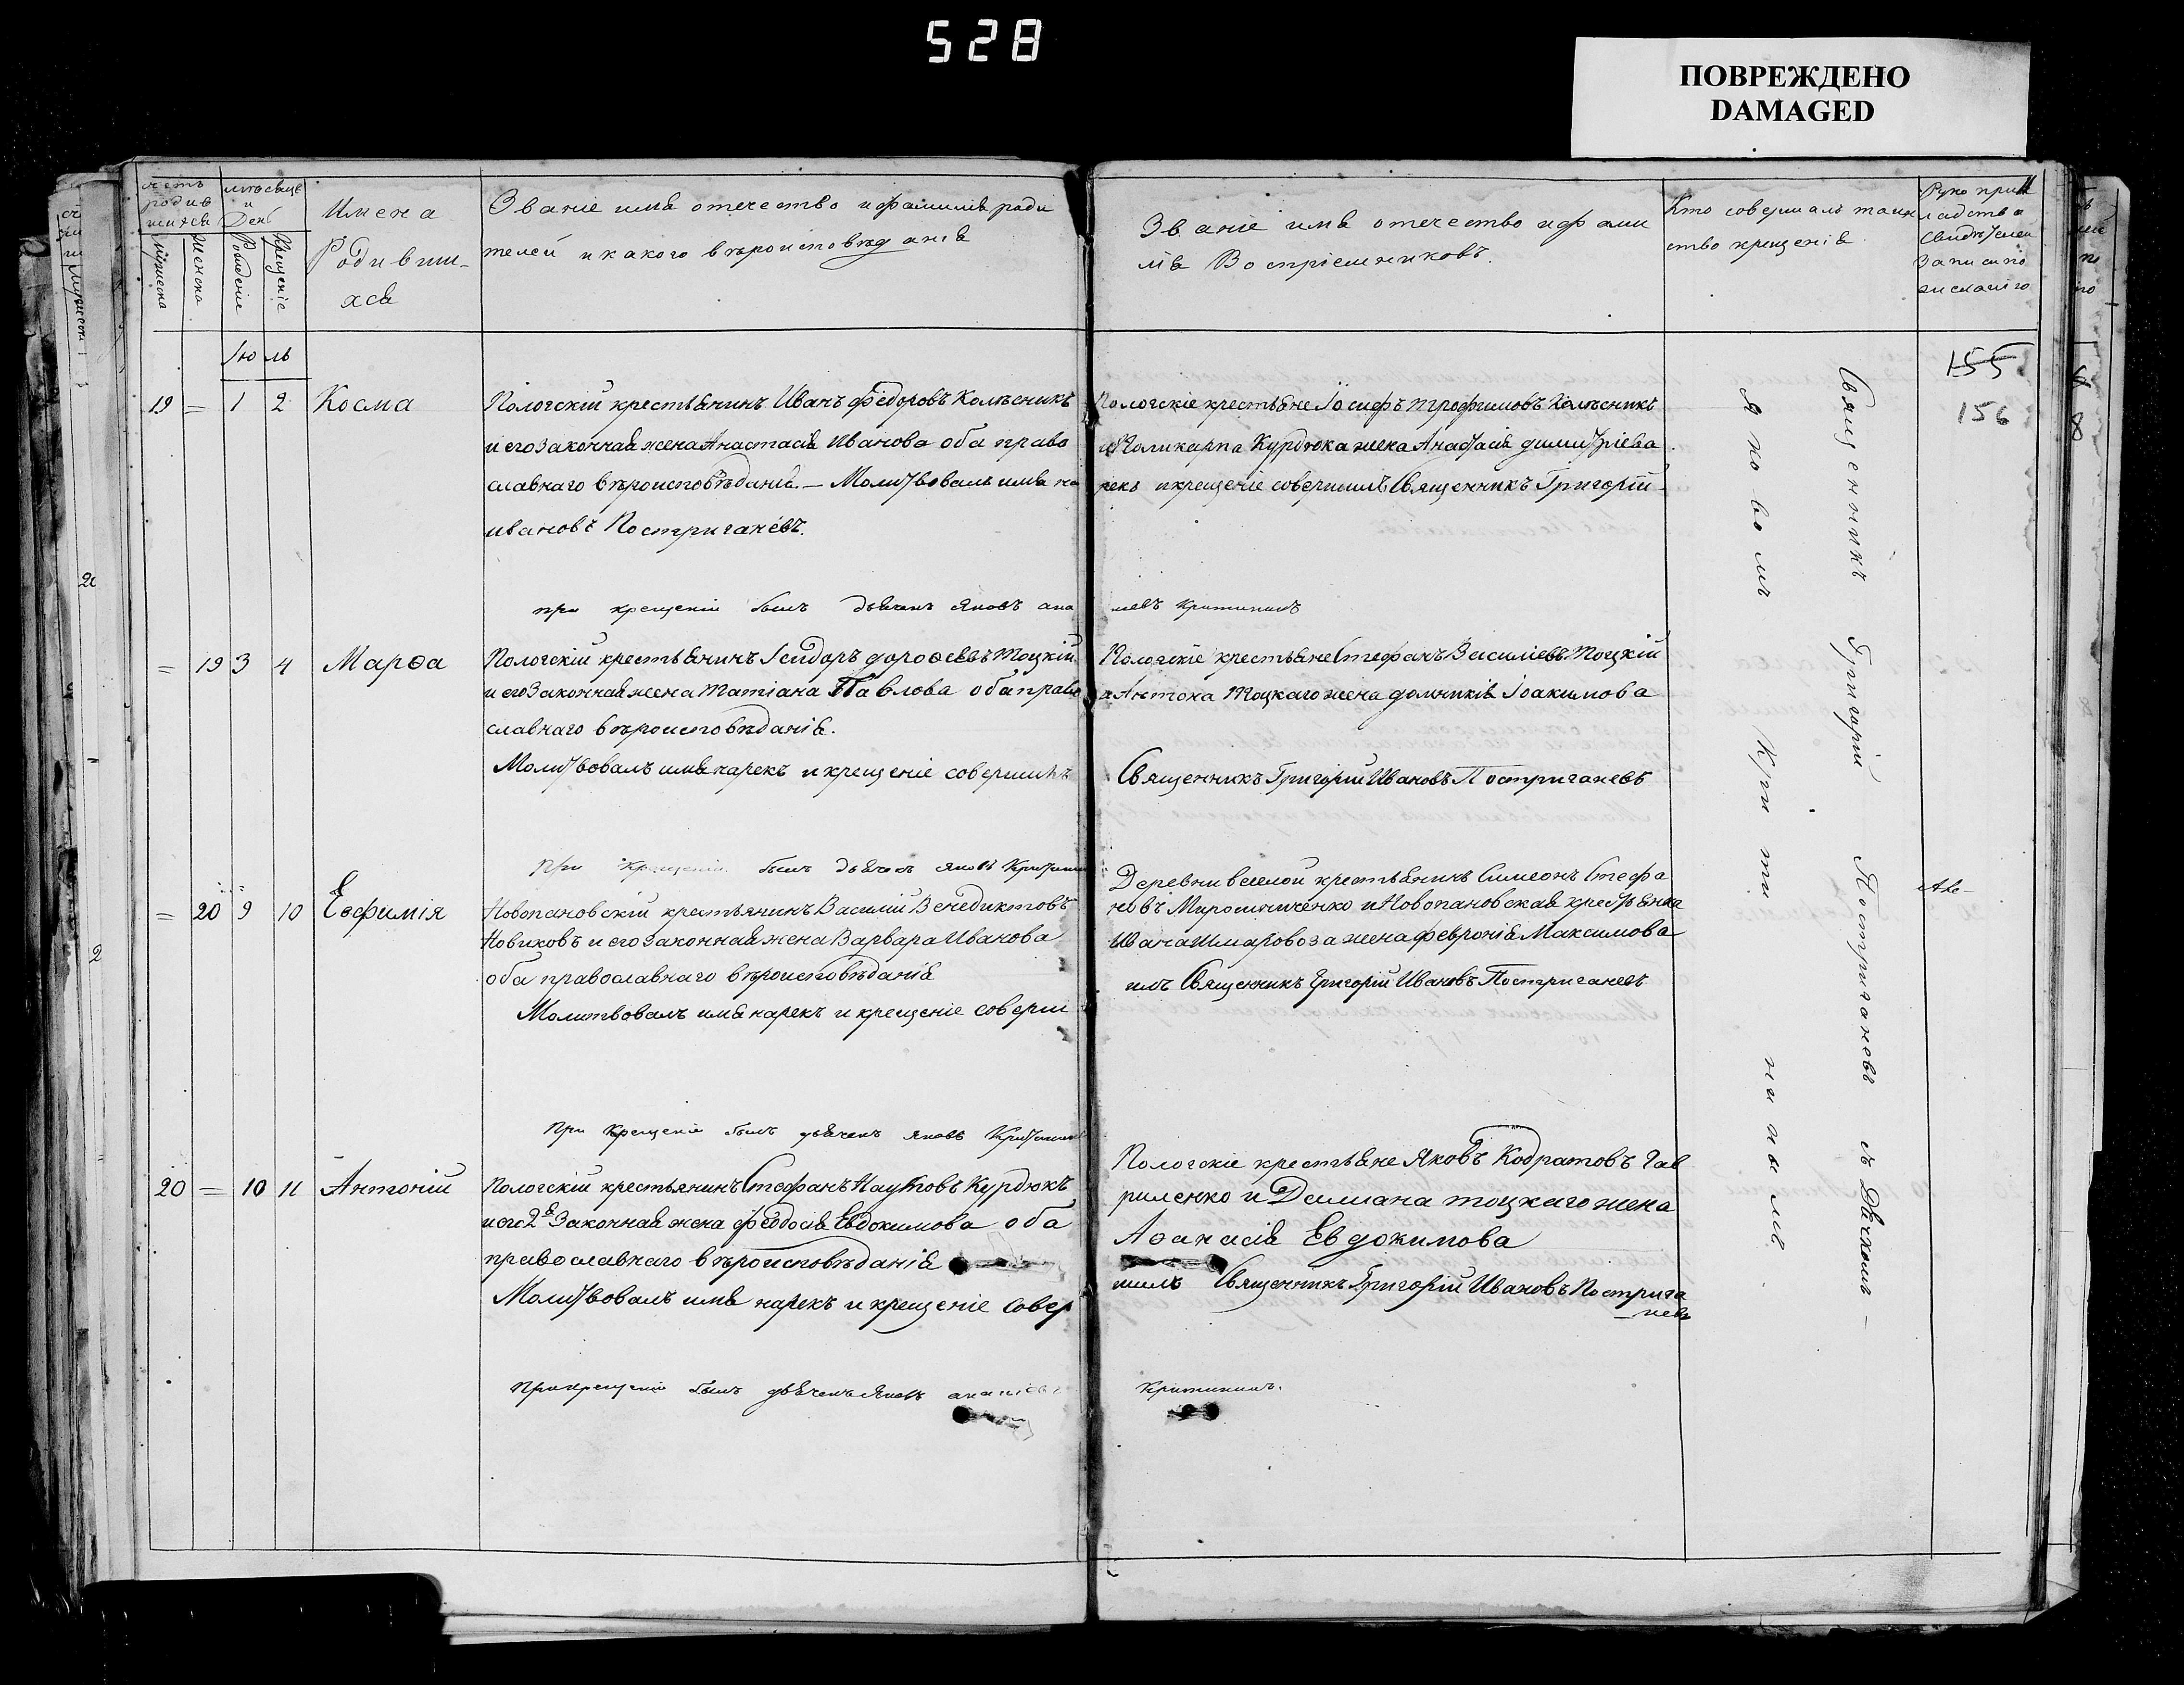 528
ПОВРЕЖДЕНО
DAMAGED
счетъ родив шихся
мѣсяцъ и День
Имена Родивши-хся
Званіе имя отечество и фамилія роди
телей и какого вѣроисповѣданія
Званіе имя отечество и фами
лія Воспріемниковъ.
Кто совершалъ таин
ство крещенія
Руко прик
ладство
Свидѣтелей
записи по
желанію
мужеска
женска
Рожденіе
Крещеніе
Іюль
155
156
19 = 1 2 Косма
Пологскій крестьянинъ Иванъ Федоровъ Колѣсникъ
и его законная жена Анастасія Иванова оба право
славнаго вѣроисповѣданія. — Молитвовалъ имя на
ивановъ Постриганевъ.
Пологскіе крестьяне Іосифъ Трофимовъ Колѣсникъ
и Поликарпа Курдюка жена Анастасія Димитріева
рекъ и крещеніе совершилъ Священникъ Григорій
при крещеніи былъ дьячекъ Яковъ ана
ніевъ Критининъ
= 19 3 4 Марѳа
Пологскій крестьянинъ Ісидоръ Дороѳеевъ Тоцкій
и его законная жена Татіана Павлова оба право
славнаго вѣроисповѣданія.
Молитвовалъ имя нарекъ и крещеніе совершилъ
Пологскіе крестьяне Стефанъ Василіевъ Тоцкій
и Антона Тоцкаго жена Домникія Іоакимова
Священникъ Григорій Ивановъ Постриганевъ
При крещеніи былъ дьячекъ Яковъ
= 20 9 10 Евфимія
Новопановскій крестьянинъ Василій Венедиктовъ
Новиковъ и его законная жена Варвара Иванова
оба православнаго вѣроисповѣданія
Молитвовалъ имя нарекъ и крещеніе соверши
Деревни веселой крестьянинъ Симеонъ Стефа
новъ Мирошниченко и Новопановская крестьянка
Ивана Шмаровоза жена Февронія Максимова
илъ Священникъ Григорій Ивановъ Постриганевъ
При крещеніи былъ дьячекъ Яковъ
20 = 10 11 Антоній
Пологскій крестьянинъ Стефанъ Наумовъ Курдюкъ
и его 2я законная жена Феодосія Евдокимова оба
православнаго вѣроисповѣданія
Молитвовалъ имя нарекъ и крещеніе совер
Пологскіе крестьяне Яковъ Кодратовъ Гав
риленко и Демиана Тоцкаго жена
Аѳанасія Евдокимова
шилъ Священникъ Григорій Ивановъ Пострига
невъ
При крещеніи былъ дьячекъ Яковъ ананіевъ
Критининъ.
Священникъ Григорій Постриганевъ съ Дьячкомъ
Яковомъ Критининымъ.